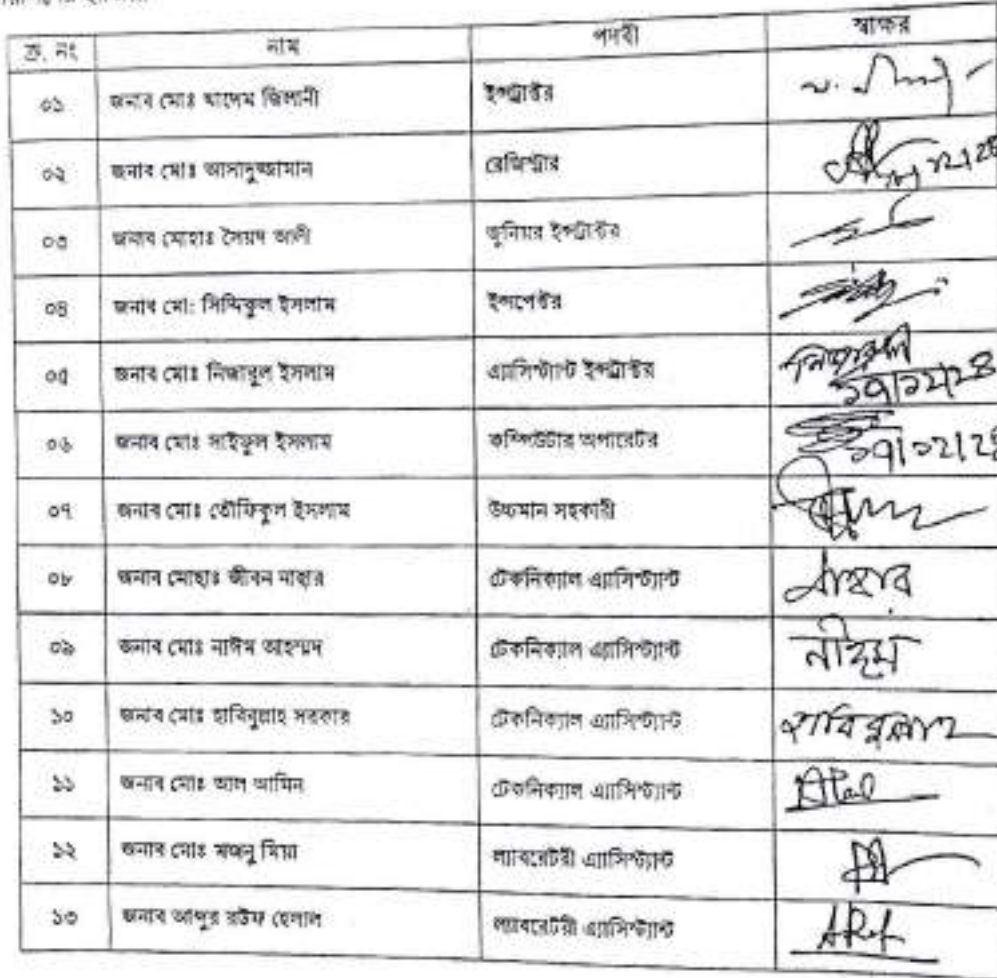 ক্র. নং নাম পদবী স্বাক্ষর
০১ জনাব মোঃ খাদেম জিলানী ইন্সট্রাক্টর
০২ জনাব মোঃ আসাদুজ্জামান রেজিস্ট্রার
০৩ জনাব মোহাঃ সৈয়দ আলী জুনিয়র ইন্সট্রাক্টর
০৪ জনাব মো: সিদ্দিকুল ইসলাম ইন্সপেক্টর
০৫ জনাব মোঃ নিজাবুল ইসলাম এ্যাসিস্ট্যান্ট ইন্সট্রাক্টর ১৭/১২/২৪
০৬ জনাব মোঃ সাইফুল ইসলাম কম্পিউটার অপারেটর ১৭/১২/২৪
০৭ জনাব মোঃ তৌফিকুল ইসলাম উচ্চমান সহকারী
০৮ জনাব মোহাঃ জীবন নাহার টেকনিক্যাল এ্যাসিস্ট্যান্ট নাহার
০৯ জনাব মোঃ নাঈম আহম্মদ টেকনিক্যাল এ্যাসিস্ট্যান্ট নাঈম
১০ জনাব মোঃ হাবিবুল্লাহ সরকার টেকনিক্যাল এ্যাসিস্ট্যান্ট হাবিবুল্লাহ
১১ জনাব মোঃ আল আমিন টেকনিক্যাল এ্যাসিস্ট্যান্ট
১২ জনাব মোঃ মজনু মিয়া ল্যাবরেটরী এ্যাসিস্ট্যান্ট
১৩ জনাব আব্দুর রউফ হেলাল ল্যাবরেটরী এ্যাসিস্ট্যান্ট